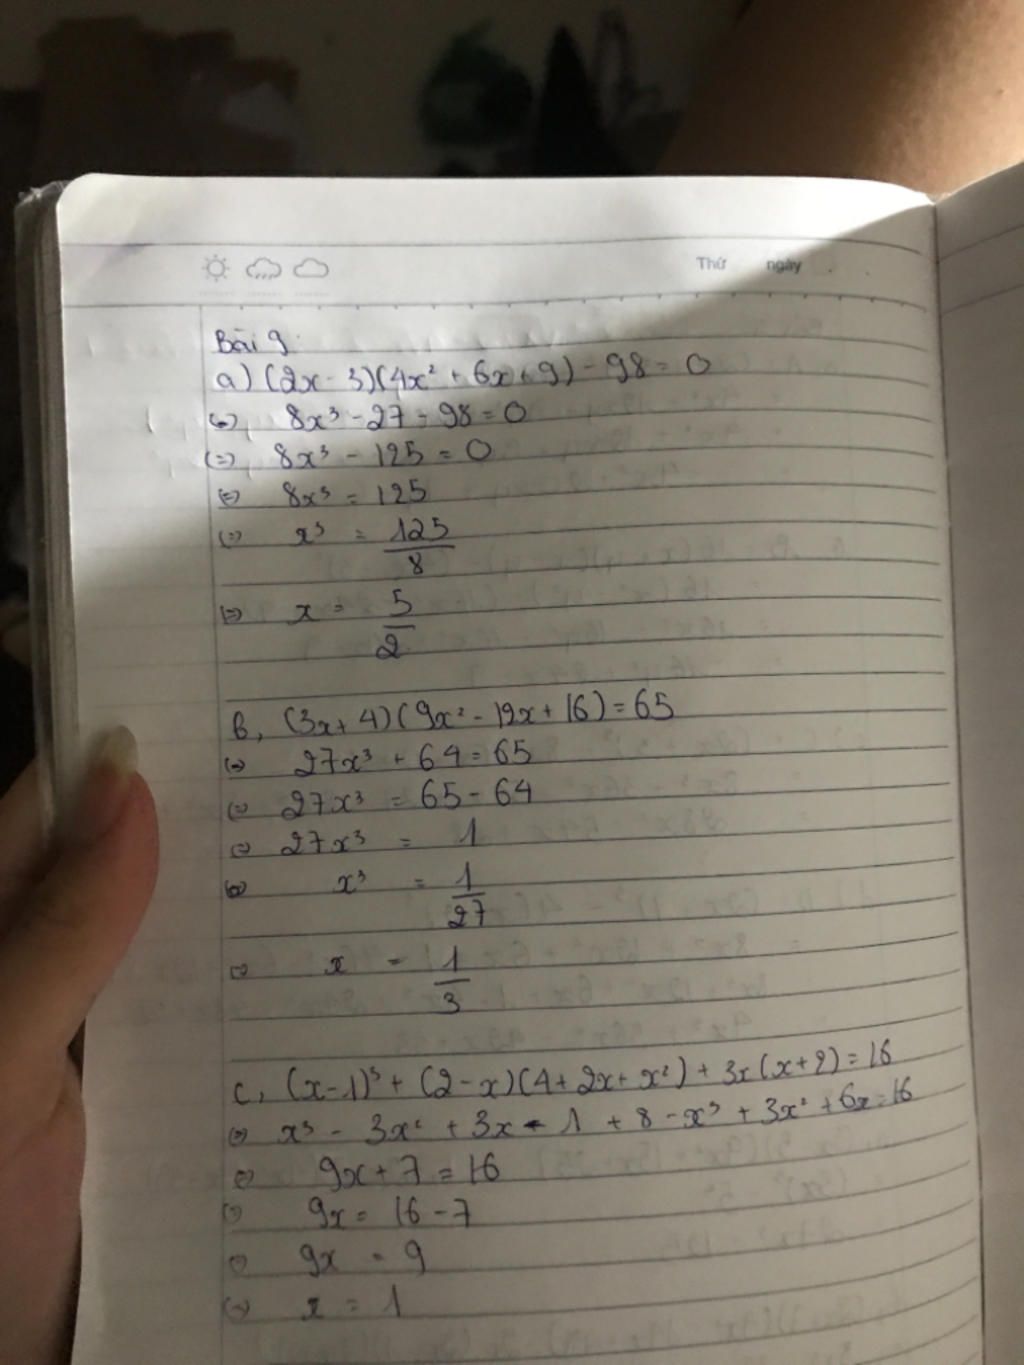 Thứ ngày
Bài 9:
a) (2x - 3)(4x² + 6x + 9) - 98 = 0
(=) 8x³ - 27 - 98 = 0
(=) 8x³ - 125 = 0
(=) 8x³ = 125
(=) x³ = 125/8
(=) x = 5/2
b, (3x + 4)(9x² - 12x + 16) = 65
(=) 27x³ + 64 = 65
(=) 27x³ = 65 - 64
(=) 27x³ = 1
(=) x³ = 1/27
(=) x = 1/3
c, (x - 1)³ + (2 - x)(4 + 2x + x²) + 3x(x + 2) = 16
(=) x³ - 3x² + 3x - 1 + 8 - x³ + 3x² + 6x = 16
(=) 9x + 7 = 16
(=) 9x = 16 - 7
(=) 9x = 9
(=) x = 1